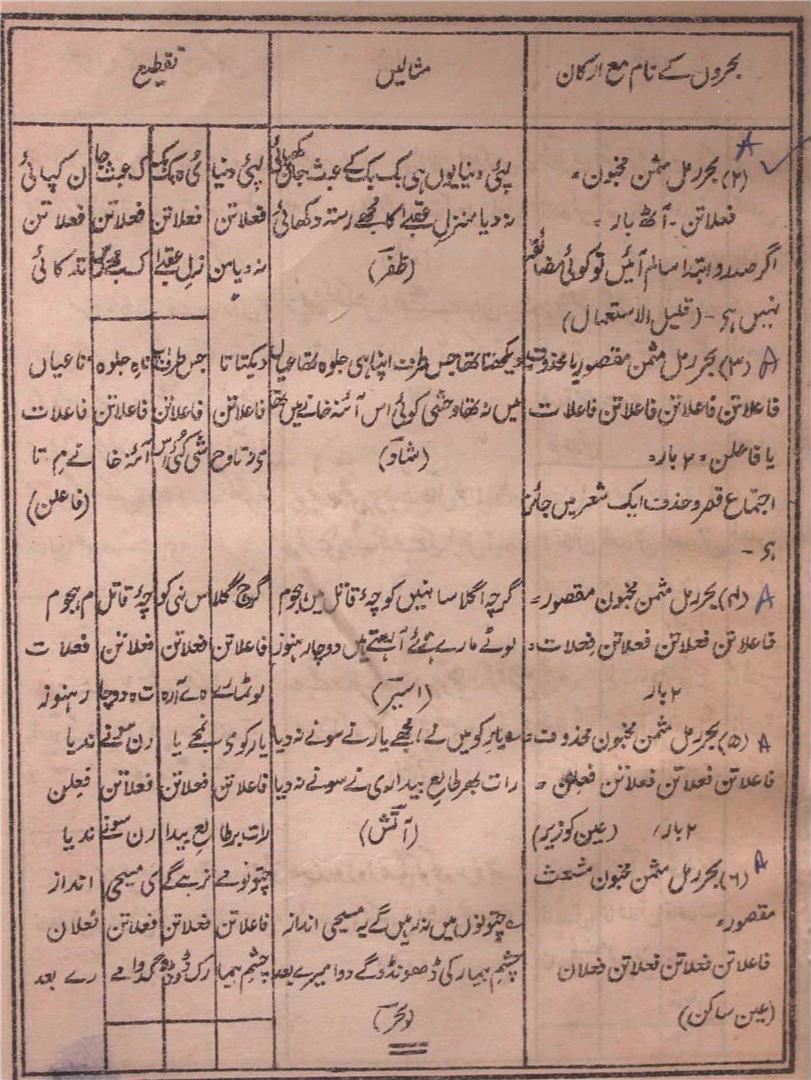 بحروں کے نام مع ارکان
مثالیں
تقطیع
A
(۲) بحر رمل مثمن مخبون۔
فعلاتن۔ آٹھ بار۔
اگر صدر و ابتدا سالم آئیں تو کوئی مضائقہ
نہیں ہو۔ (قلیل الاستعمال)
پئی دنیا یوں ہی بک بک کے عبث جان کھپائی
نہ دیا منزلِ عقبےٰ کا مجھے رستہ دکھائی
(ظفرؔ)
پئی دنیا ئ ہ بک بک ک عبث جا ن کپائی
فعلاتن فعلاتن فعلاتن فعلاتن
نہ دیا من زلِ عقبےٰ
A (۳) بحر رمل مثمن مقصور یا محذوف
فاعلاتن فاعلاتن فاعلاتن فاعلات
یا فاعلن۔ ۲ بار۔
اجتماع قصر و حذف ایک شعر میں جائز
ہو۔
دیکھتا تھا جس طرف اپنا ہی جلوہ تھا عیاں
میں نہ تھا وحشی کوئی اس آئنہ خانے میں تھا
(شادؔ)
دیکتا تا جس طرف اپ ناہ جلوہ تا عیاں
فاعلاتن فاعلاتن فاعلاتن فاعلات
می نہ تا وح شی کئی اس آئنہ خا نے م تا
(فاعلن)
A (۴) بحر رمل مثمن مخبون مقصور۔
فاعلاتن فعلاتن فعلاتن فعلات۔
۲ بار
گرچہ اگلا سا نہیں کوچۂ قاتل میں ہجوم
لوٹے مارے ہوئے آ بیٹھتے ہیں دوچار ہنوز
(اسیرؔ)
گرچ اگلا س نہی کو چۂ قاتل م ہجوم
فاعلاتن فعلاتن فعلاتن فعلات
A (۵) بحر رمل مثمن مخبون محذوف۔
فاعلاتن فعلاتن فعلاتن فعِلن۔
۲ بار، (عین کو زیر)
یار کو میں نے، مجھے یار نے سونے نہ دیا
رات بھر طالعِ بیداری نے سونے نہ دیا
(آتشؔ)
یار کو مے ن مجے یا رن سونے ندیا
فاعلاتن فعلاتن فعلاتن فعِلن
رات بر طا لعِ بیدا رن سونے ندیا
A (۶) بحر رمل مثمن مخبون مشعث
مقصور۔
فاعلاتن فعلاتن فعلاتن فعلان
(عین ساکن)
چتونوں میں نہ رہیں گے یہ مسیحی انداز
چشمِ بیمار کی ڈھونڈو گے دوا میرے بعد
(بحرؔ)
چتونو مے نرہے گے ی مسیحی انداز
فاعلاتن فعلاتن فعلاتن فعلان
چشمِ بیما رک ڈوڈو گ دوا مے رے بعد